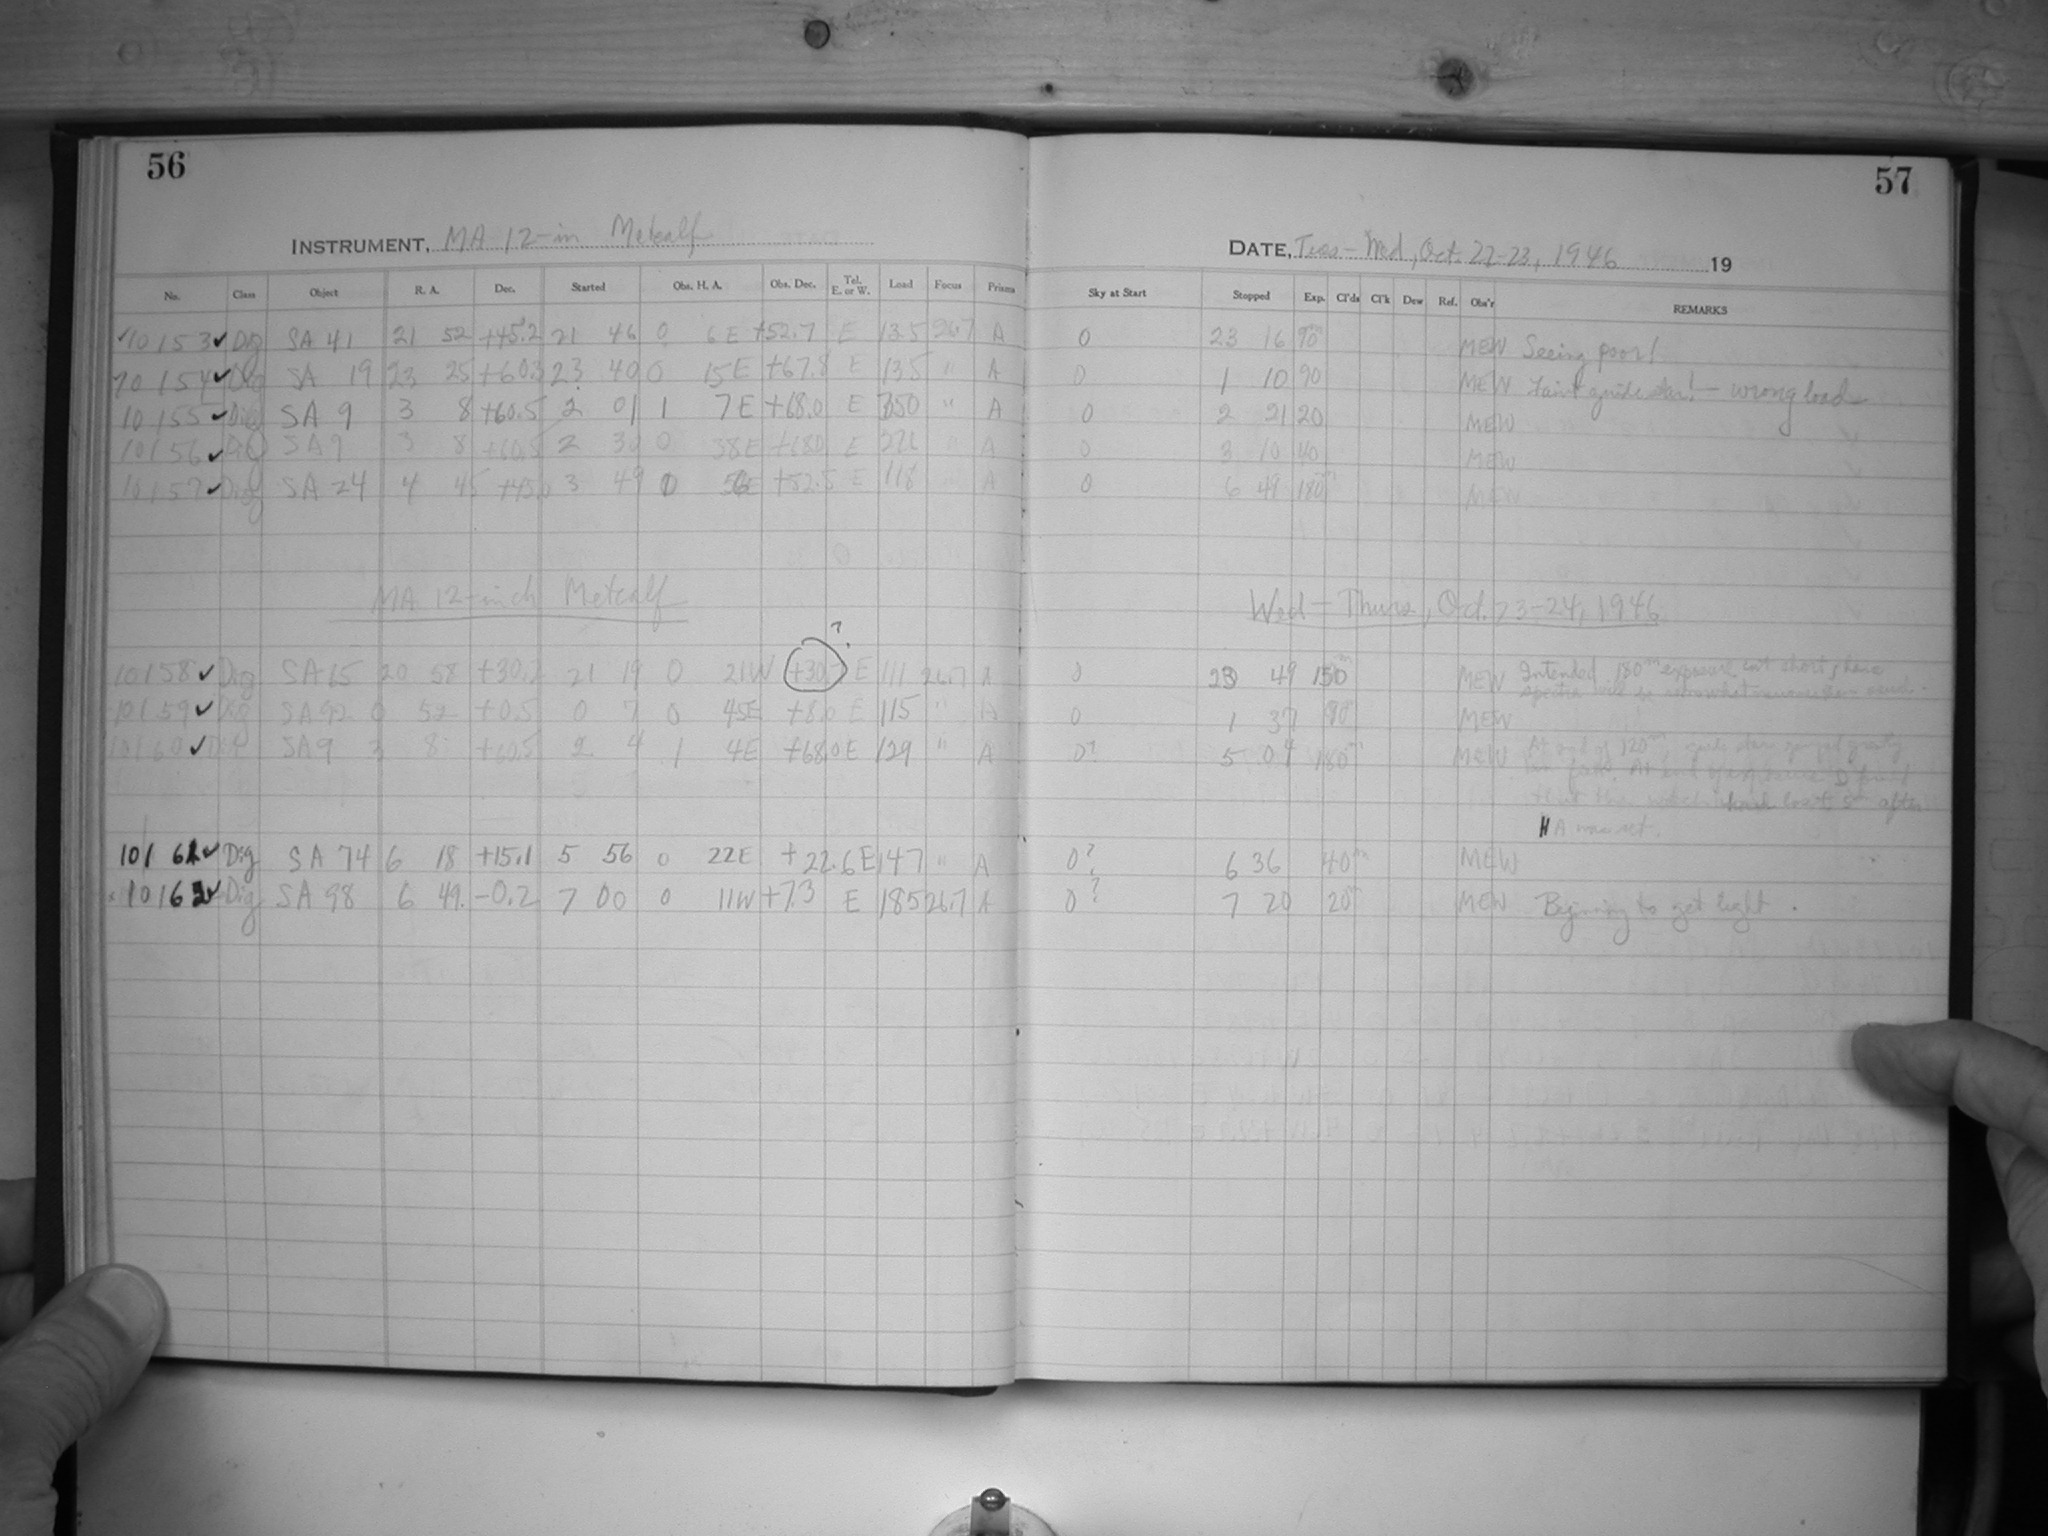 56
57
INSTRUMENT, MA 12-in Metcalf
DATE, Tues-Wed, Oct. 22-23, 1946 19
No. Class Object R. A. Dec. Started Obs. H. A. Obs. Dec. Tel. E. or W. Load Focus Prisms Sky at Start Stopped Exp. Cl'ds Cl'k Dew Ref. Obs'r REMARKS
10153 ✓ Dig SA 41 21 52 +45.2 21 46 0 6E +52.7 E 13.5 26.7 A 0 23 16 90m MEW Seeing poor!
10154 ✓ Dig SA 19 23 25 +60.3 23 40 0 15E +67.8 E 13.5 " A 0 1 10 90 MEW Faint guide star! - wrong load
10155 ✓ Dig SA 9 3 8 +60.5 2 01 1 7E +68.0 E 350 " A 0 2 21 20 MEW
10156 ✓ SA 9 3 8 +60.5 2 30 0 38E +68.0 E " A 0 3 10 40 MEW
10157 ✓ Dig SA 24 4 45 3 49 0 56E +52.5 E 118 A 0 6 49 180m MEW
MA 12-inch Metcalf
Wed - Thurs, Oct. 23-24, 1946
?
10158 ✓ Dig SA 65 20 58 21 19 0 21W E 111 26.7 A 0 23 49 150m MEW Intended 180m exposure cut short, hence
spectra will be somewhat
10159 ✓ Dig SA 92 0 52 +0.5 0 7 0 45E +8.0 E 115 " A 0 1 37 90m MEW
10160 ✓ SA 9 3 8 +60.5 2 4 1 4E +68.0 E 129 " A 0? 5 04 180m MEW At end of 120m, guide star
At end of exposure I found
that the watch had lost 5m after
HA was set.
10161 ✓ Dig SA 74 6 18 +15.1 5 56 0 22E +22.6 E 147 " A 0? 6 36 40m MEW
10162 ✓ Dig SA 98 6 49. -0.2 7 00 0 11W +7.3 E 185 26.7 A 0? 7 20 20m MEW Beginning to get light.